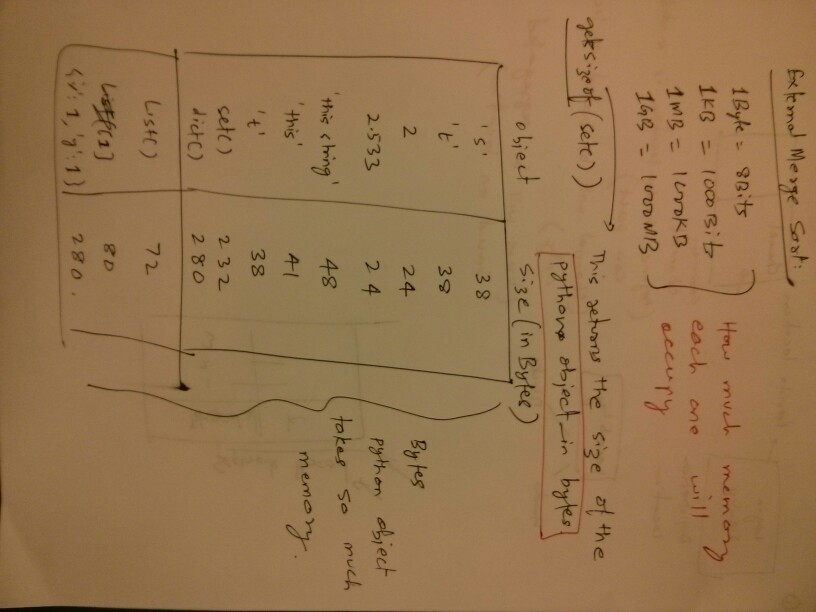 External Merge Sort:
1Byte = 8Bits
1KB = 1000Bits
1MB = 1000KB
1GB = 1000MB
How much memory
each one will
occupy
getsizeof(set())
This returns the size of the
python object in bytes
object size (in Bytes)
's' 38
't' 38
2 24
2.533 24
'this string' 48
'this' 41
't' 38
set() 232
dict() 280
List() 72
List[1] 80
{'x':1, 'y':1} 280.
Bytes
python object
takes so much
memory.